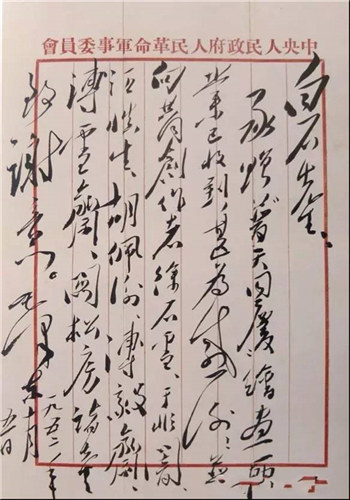 中央人民政府人民革命軍事委員會
白石先生、
承贈普天同慶繪畫一軸，
業已收到，甚為感謝，並
向共同創作者徐石雪、于非闇、
汪慎生、胡佩衡、溥毅齋、
溥雪齋、關松房諸先生
致謝意。毛澤東
一九五二年
十月
五日